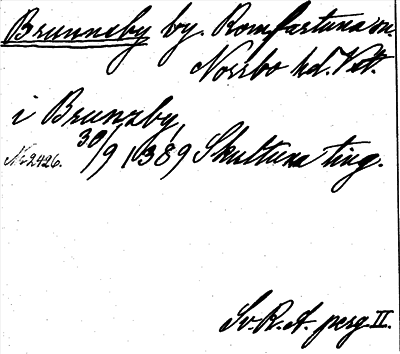 Brunnsby by. Romfartuna sn.
Norrbo hd. Vstl.
i Brunzby
No 2426. 30/9 1389 Skultuna ting.
Sv. R. A. perg II.